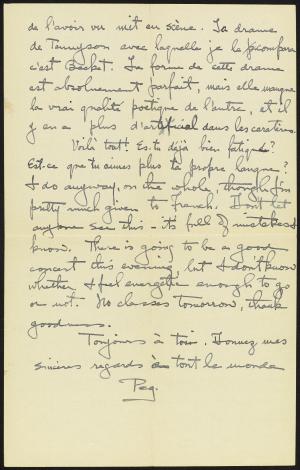 de l'avoir vu mit en scène. La drame
de Tennyson avec laquelle je la compare
c'est Becket. La forme de cette drame
est absolument parfait, mais elle manque
la vrai qualité poétique de l'autre, et il
y en a plus d'artificial dans les caratères.
Voilà tout! Es-tu déjà bien fatigué?
Est-ce que tu aimes plus ta propre langue?
I do anyway, on the whole, though I'm
pretty much given to french. Don't let
anyone see this - it's full of mistakes I
know. There is going to be a good
concert this evening, but I don't know
whether I feel energetic enough to go
or not. No classes tomorrow, thank
goodness.
Toujours à toi. Donnez mes
sincères regards à tout le monde
Peg.